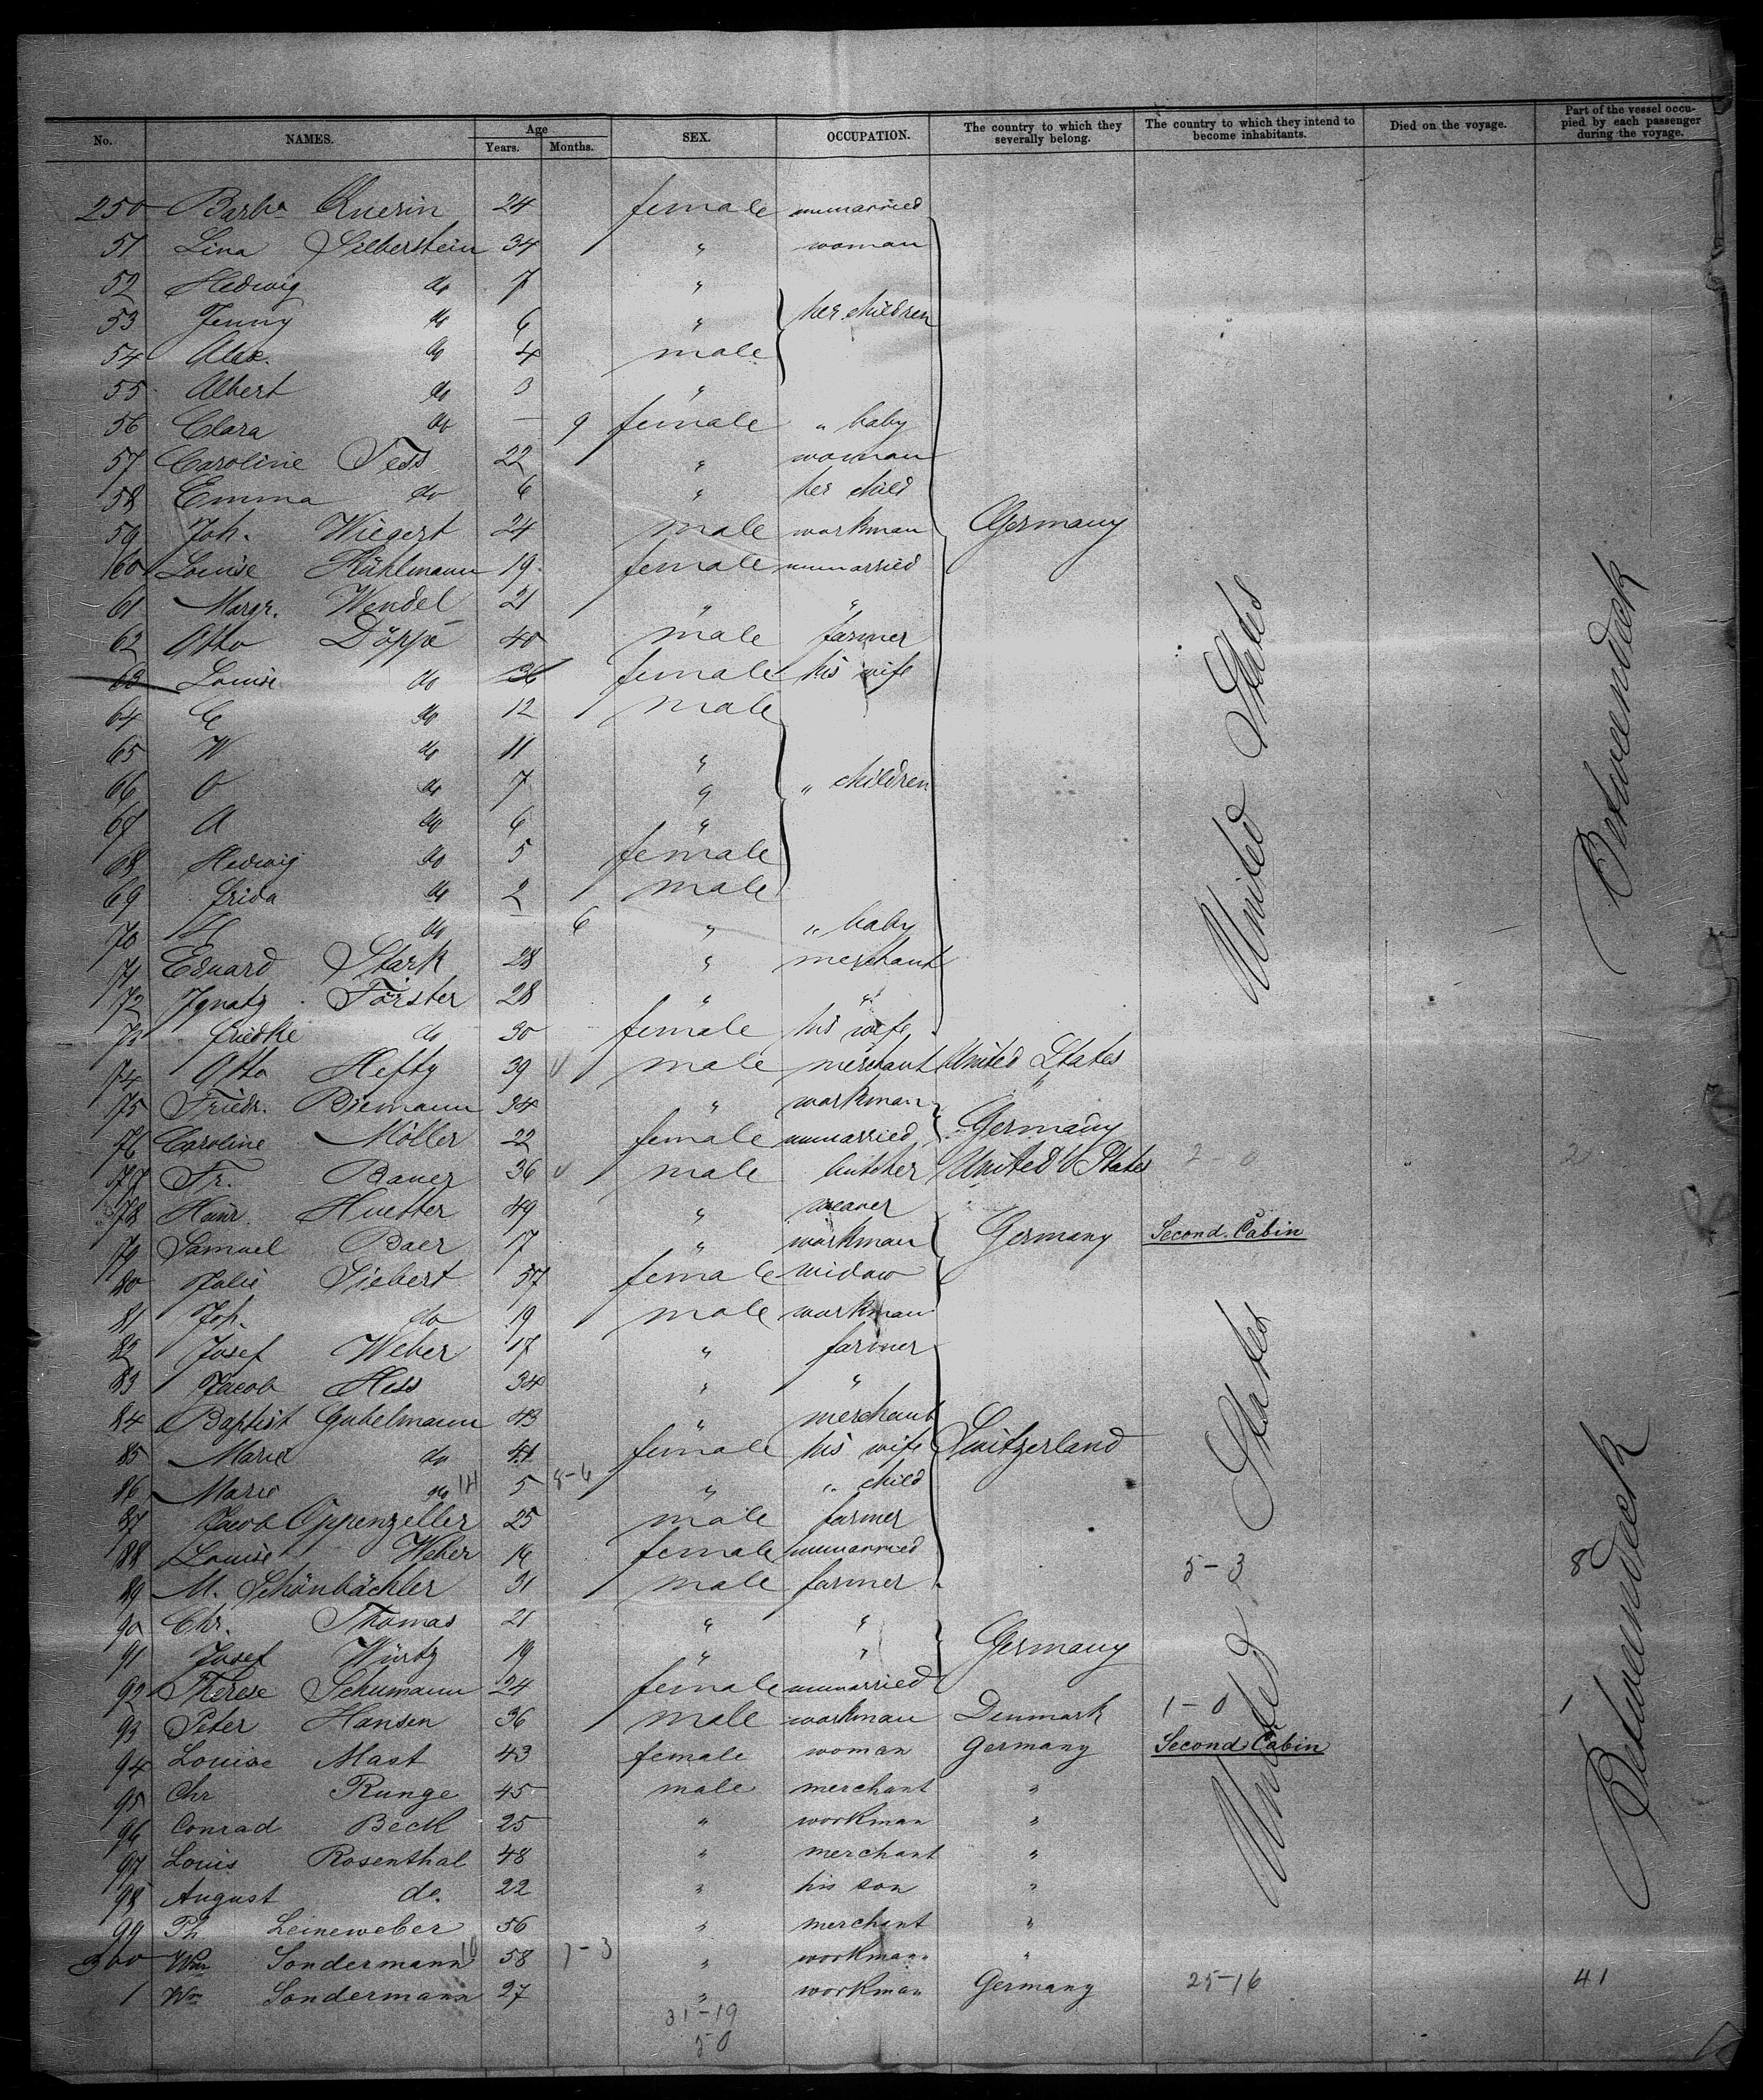 No. NAMES. Age Years. Months. SEX. OCCUPATION. The country to which they severally belong. The country to which they intend to become inhabitants. Died on the voyage. Part of the vessel occupied by each passenger during the voyage.
250 Barba Querin 24 female unmarried
51 Lina Silberstein 34 " woman
52 Hedwig do 7 "
53 Jenny do 6 " her children
54 Alex. do 4 male
55 Albert do 3 "
56 Clara do - 9 female " baby
57 Caroline Tess 22 " woman
58 Emma do 6 " her child
59 Joh. Wiegert 24 male workman Germany
160 Louise Kühlmann 19 female unmarried
61 Margr. Wendel 21 " "
62 Otto Döppe 40 male farmer
63 Louise do 36 female his wife
64 C do 12 male
65 W do 11 "
66 O do 7 " " children
67 A do 6 "
68 Hedwig do 5 female
69 frida do 2 male
70 do - 6 " " baby
71 Eduard Stark 28 " merchant
72 Ignatz Förster 28 " "
73 friedke do 30 female his wife
74 Otto Hefty 39 male merchant United States
75 Friedr. Biemann 34 " workman
76 Caroline Möller 22 female unmarried Germany
77 Fr. Bauer 36 male butcher United States 2-0 2
78 Heinr. Huetter 49 " weaver
79 Samuel Baer 17 " workman Germany Second Cabin
80 Julie Siebert 57 female widow
81 Joh. do 19 male workman
82 Josef Weber 17 " farmer
83 Jacob Hess 34 " "
84 Baptist Gubelmann 43 " merchant
85 Maria do 41 female his wife Switzerland
86 Marie do 14 5 8-6 " " child
87 Jacob Oppenzeller 25 male farmer
88 Louise Weber 16 female unmarried
89 M. Schönbächler 31 male farmer 5-3 8
90 Chr. Thomas 21 " "
91 Josef Würtz 19 " " Germany
92 Therese Schumann 24 female unmarried
93 Peter Hansen 36 male workman Denmark 1-0 1
94 Louise Mast 43 female woman Germany Second Cabin
95 Chr Runge 45 male merchant "
96 Conrad Beck 25 " workman "
97 Louis Rosenthal 48 " merchant "
98 August do. 22 " his son "
99 Ph Leineweber 56 " merchant "
300 Wm Sondermann 10 58 7-3 " workman "
1 Wm Sondermann 27 " workman Germany 25-16 41
31-19
50
United States
United States
Betweendeck
Betweendeck